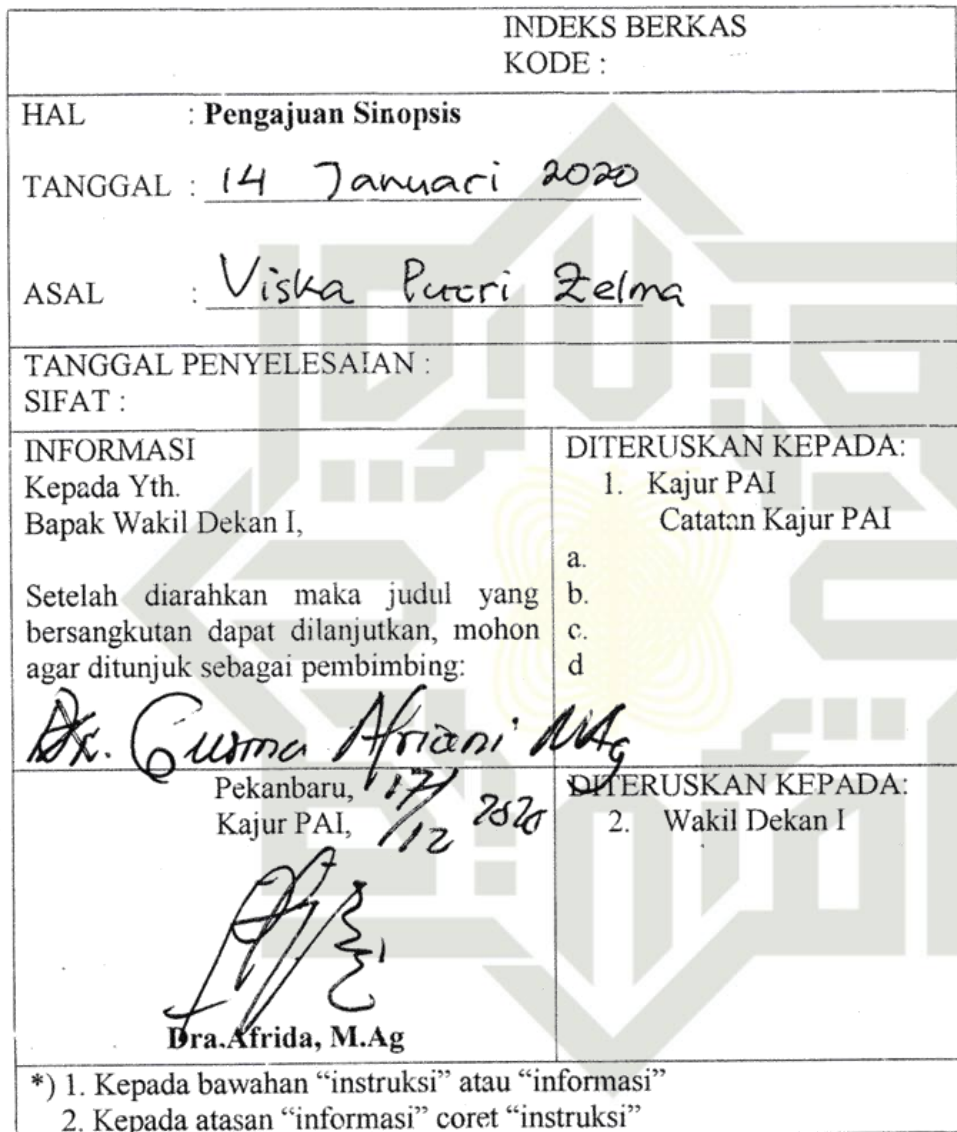 INDEKS BERKAS
KODE :
HAL : Pengajuan Sinopsis
TANGGAL : 14 Januari 2020
ASAL : Viska Putri Zelma
TANGGAL PENYELESAIAN :
SIFAT :
INFORMASI
Kepada Yth.
Bapak Wakil Dekan I,
Setelah diarahkan maka judul yang
bersangkutan dapat dilanjutkan, mohon
agar ditunjuk sebagai pembimbing:
Dr. Gusma Afriani MAg
DITERUSKAN KEPADA:
1. Kajur PAI
Catatan Kajur PAI
a.
b.
c.
d
Pekanbaru, 17/12 2020
Kajur PAI,
Dra.Afrida, M.Ag
DITERUSKAN KEPADA:
2. Wakil Dekan I
*) 1. Kepada bawahan “instruksi” atau “informasi”
2. Kepada atasan “informasi” coret “instruksi”